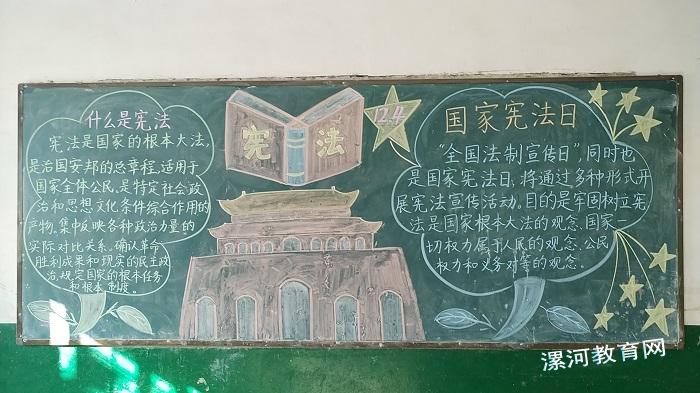 什么是宪法
宪法是国家的根本大法,
是治国安邦的总章程,适用于
国家全体公民,是特定社会政
治和思想文化条件综合作用的
产物,集中反映各种政治力量的
实际对比关系,确认革命
胜利成果和现实的民主政
治,规定国家的根本任务
和根本制度。
宪法
12.4
国家宪法日
“全国法制宣传日”,同时也
是国家宪法日,将通过多种形式开
展宪法宣传活动,目的是牢固树立宪
法是国家根本大法的观念、国家一
切权力属于人民的观念、公民
权力和义务对等的观念。
漯河教育网